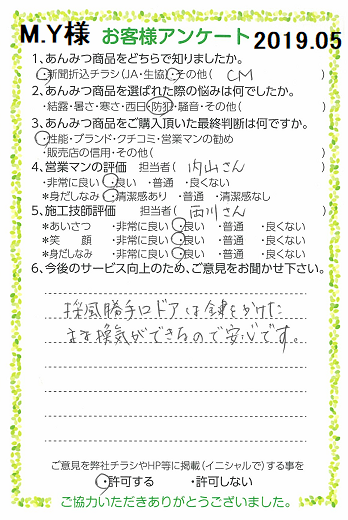 M.Y様 お客様アンケート 2019.05
1、あんみつ商品をどちらで知りましたか。
・新聞折込チラシ(JA・生協)・その他( CM )
2、あんみつ商品を選ばれた際の悩みは何でしたか。
・結露・暑さ・寒さ・西日・防犯・騒音・その他( )
3、あんみつ商品をご購入頂いた最終判断は何ですか。
・性能・ブランド・クチコミ・営業マンの勧め
・販売店の信用・その他( )
4、営業マンの評価 担当者( 内山さん )
・非常に良い ・良い ・普通 ・良くない
*身だしなみ ・清潔感あり ・普通 ・清潔感なし
5、施工技師評価 担当者( 雨川さん )
*あいさつ ・非常に良い ・良い ・普通 ・良くない
*笑 顔 ・非常に良い ・良い ・普通 ・良くない
*身だしなみ ・非常に良い ・良い ・普通 ・良くない
6、今後のサービス向上のため、ご意見をお聞かせ下さい。
採風勝手口ドアは鍵をかけた
まま換気ができるので安心です。
ご意見を弊社チラシやHP等に掲載(イニシャルで)する事を
・許可する ・許可しない
ご協力いただきありがとうございました。